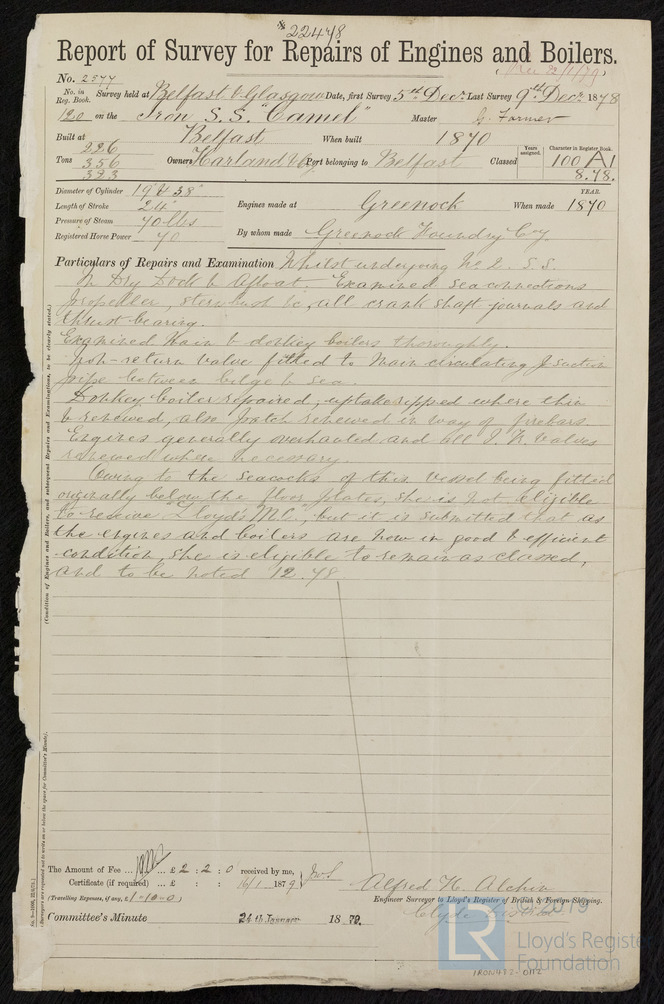 22478
Report of Survey for Repairs of Engines and Boilers.
No. 2577
No. in Reg. Book. Survey held at Belfast & Glasgow Date, first Survey 5th Decr. Last Survey 9th Decr. 1878
120 on the Iron S.S. "Camel" Master G. Farmer
Built at Belfast When built 1870
Tons 226 356 323 Owners Harland & Co Port belonging to Belfast Classed Years assigned. Character in Register Book. 100 A1 8.78.
Diameter of Cylinder 19" & 38"
Length of Stroke 24" Engines made at Greenock When made YEAR. 1870
Pressure of Steam 70 lbs
Registered Horse Power 70 By whom made Greenock Foundry Coy
Particulars of Repairs and Examination Whilst undergoing No 2. S.S.
In Dry Dock & Afloat. Examined sea connections
propeller, sternbush &c, all crank shaft journals and
thrust bearing.
Examined Main & donkey boilers thoroughly.
Non-return valve fitted to Main circulating P suction
pipe between bilge & sea.
Donkey boiler repaired, uptake ripped where thin
& renewed, also patch renewed in way of firebars.
Engines generally overhauled and all I. R. valves
renewed where necessary.
Owing to the seacocks of this vessel being fitted
originally below the floor plates, she is not eligible
to receive "Lloyd's M.C.", but it is submitted that as
the engines and boilers are now in good & efficient
condition, she is eligible to remain as classed,
and to be noted 12.78
(Condition of Engines and Boilers, and subsequent Repairs and Examinations, to be clearly stated.)
The Amount of Fee ... £ 2 : 2 : 0 received by me,
Certificate (if required) ... £ : : 16/1 1879
(Travelling Expenses, if any, £ 1-10-0)
Alfred H. Alchin
Engineer Surveyor to Lloyd's Register of British & Foreign Shipping.
Clyde District
Committee's Minute 24th January 1879.
LR
Lloyd's Register
Foundation
IRON473-0112